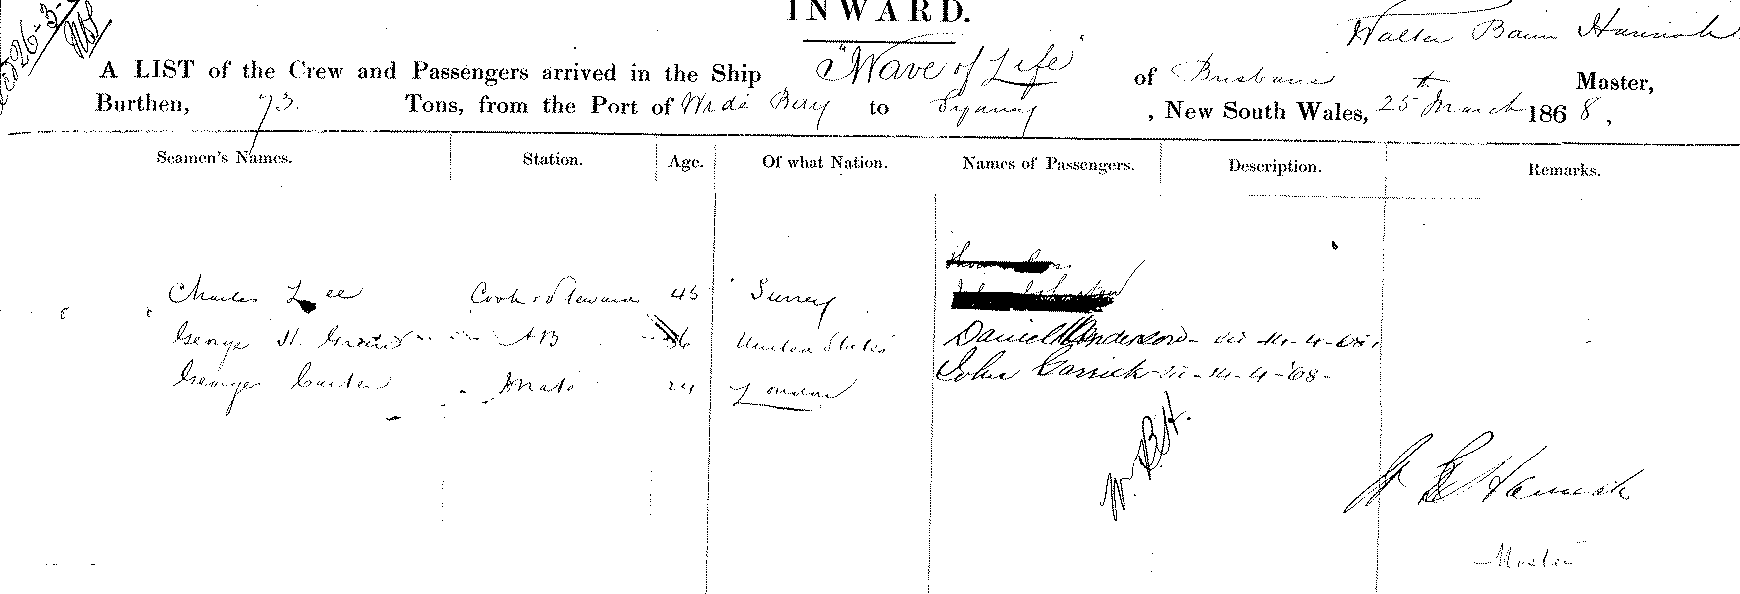 INWARD.
Walter Bain Hannah
A LIST of the Crew and Passengers arrived in the Ship "Wave of Life" of Brisbane Master,
Burthen, 73. Tons, from the Port of Wide Bay to Sydney, New South Wales, 25th March 1868,
Seamen's Names. Station. Age. Of what Nation. Names of Passengers. Description. Remarks.
Charles Lee Cook & Steward 45 Surrey
George H. AB United States Daniel Anderson
George Carter Mate 24 London John Carrick
W. B. H.
W B Hannah
Master